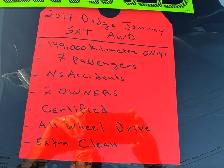 2011 Dodge Journey
SXT AWD
149,000 Kilometer ONLY!
7 Passengers
- No Accidents
- 2 OWNERS
- Certified
- All Wheel Drive
- Extra Clean